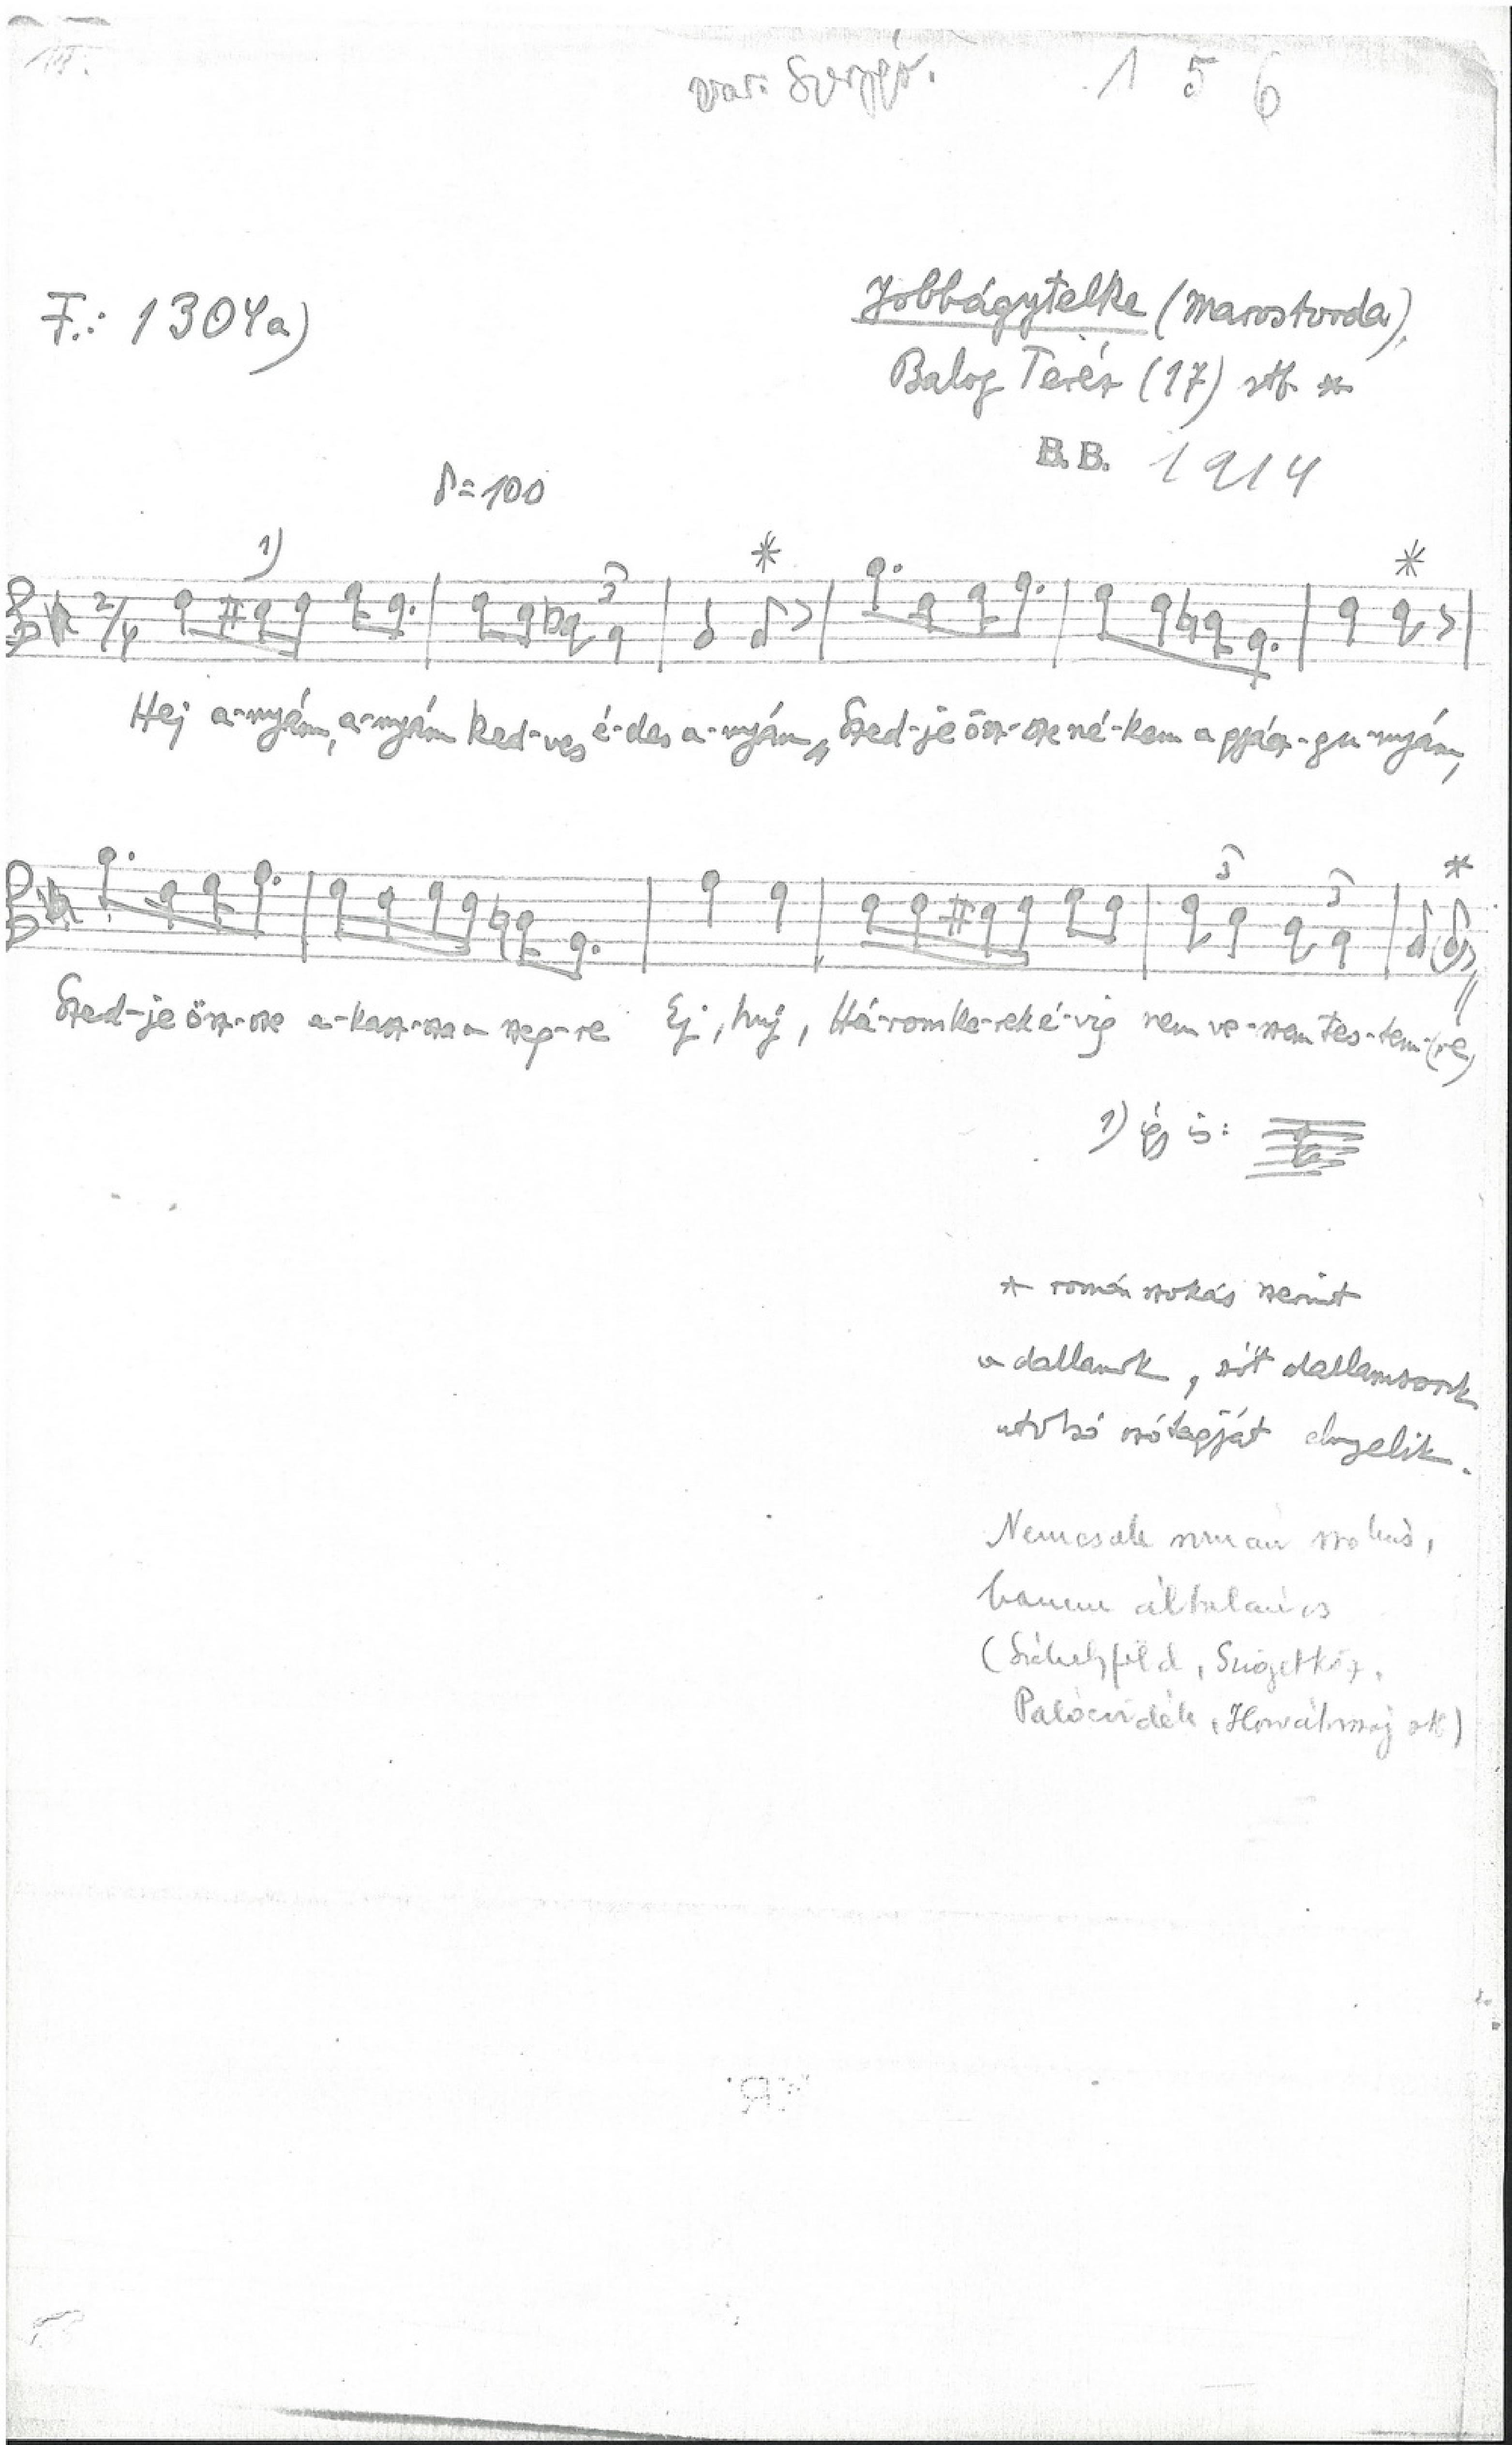 var. 156
F.: 1304a)
Jobbágytelke (Marostorda),
Balog Teréz (17) stb. *
B.B. 1914
♪=100
1) *
2/4 3 *
Hej a-nyám, a-nyám ked-ves é-des a-nyám, Szed-je ösz-sze né-kem a gyász-gu-nyám,
3 3 *
Szed-je ösz-sze a-kasz-sza szeg-re Ej, huj, Há-rom ke-rek é-vig nem ve-szem tes-tem-(re)
1) így is:
* román szokás szerint
a dallamok, sőt dallamsorok
utolsó szótagját elnyelik.
Nemcsak román szokás,
hanem általános
(Székelyföld, Szigetköz,
Palócvidék, stb)